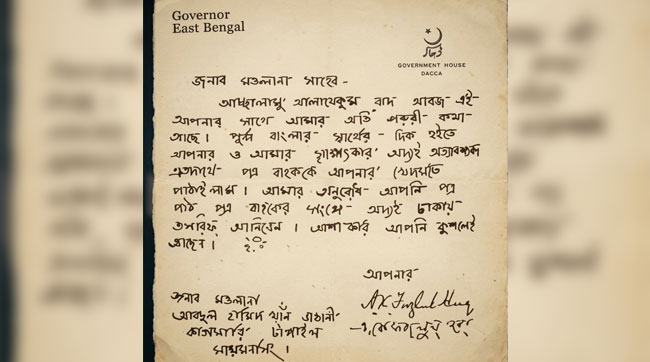 Governor
East Bengal
GOVERNMENT HOUSE
DACCA
জনাব মওলানা সাহেব -
আচ্ছালামু আলায়েকুম বাদ আরজ এই-
আপনার সাথে আমার অতি জরুরী কথা-
আছে। পূর্ব্ব বাংলার স্বার্থের দিক হইতে
আপনার ও আমার সাক্ষাৎকার অদ্যই অত্যাবশ্যক
এতদার্থে- পত্র বাহককে আপনার খেদমতে
পাঠাইলাম। আমার অনুরোধ- আপনি পত্র
পাঠ পত্র বাহকের সংগে অদ্যই ঢাকায়-
তসরিফ আনিবেন। আশা করি আপনি কুশলেই
আছেন। ইং
আপনার
জনাব মওলানা
A.K. Fazlul Huq
আবদুল হামিদ খাঁন ভাসানী
কাগমারি টাঙ্গাইল
ময়মনসিং।